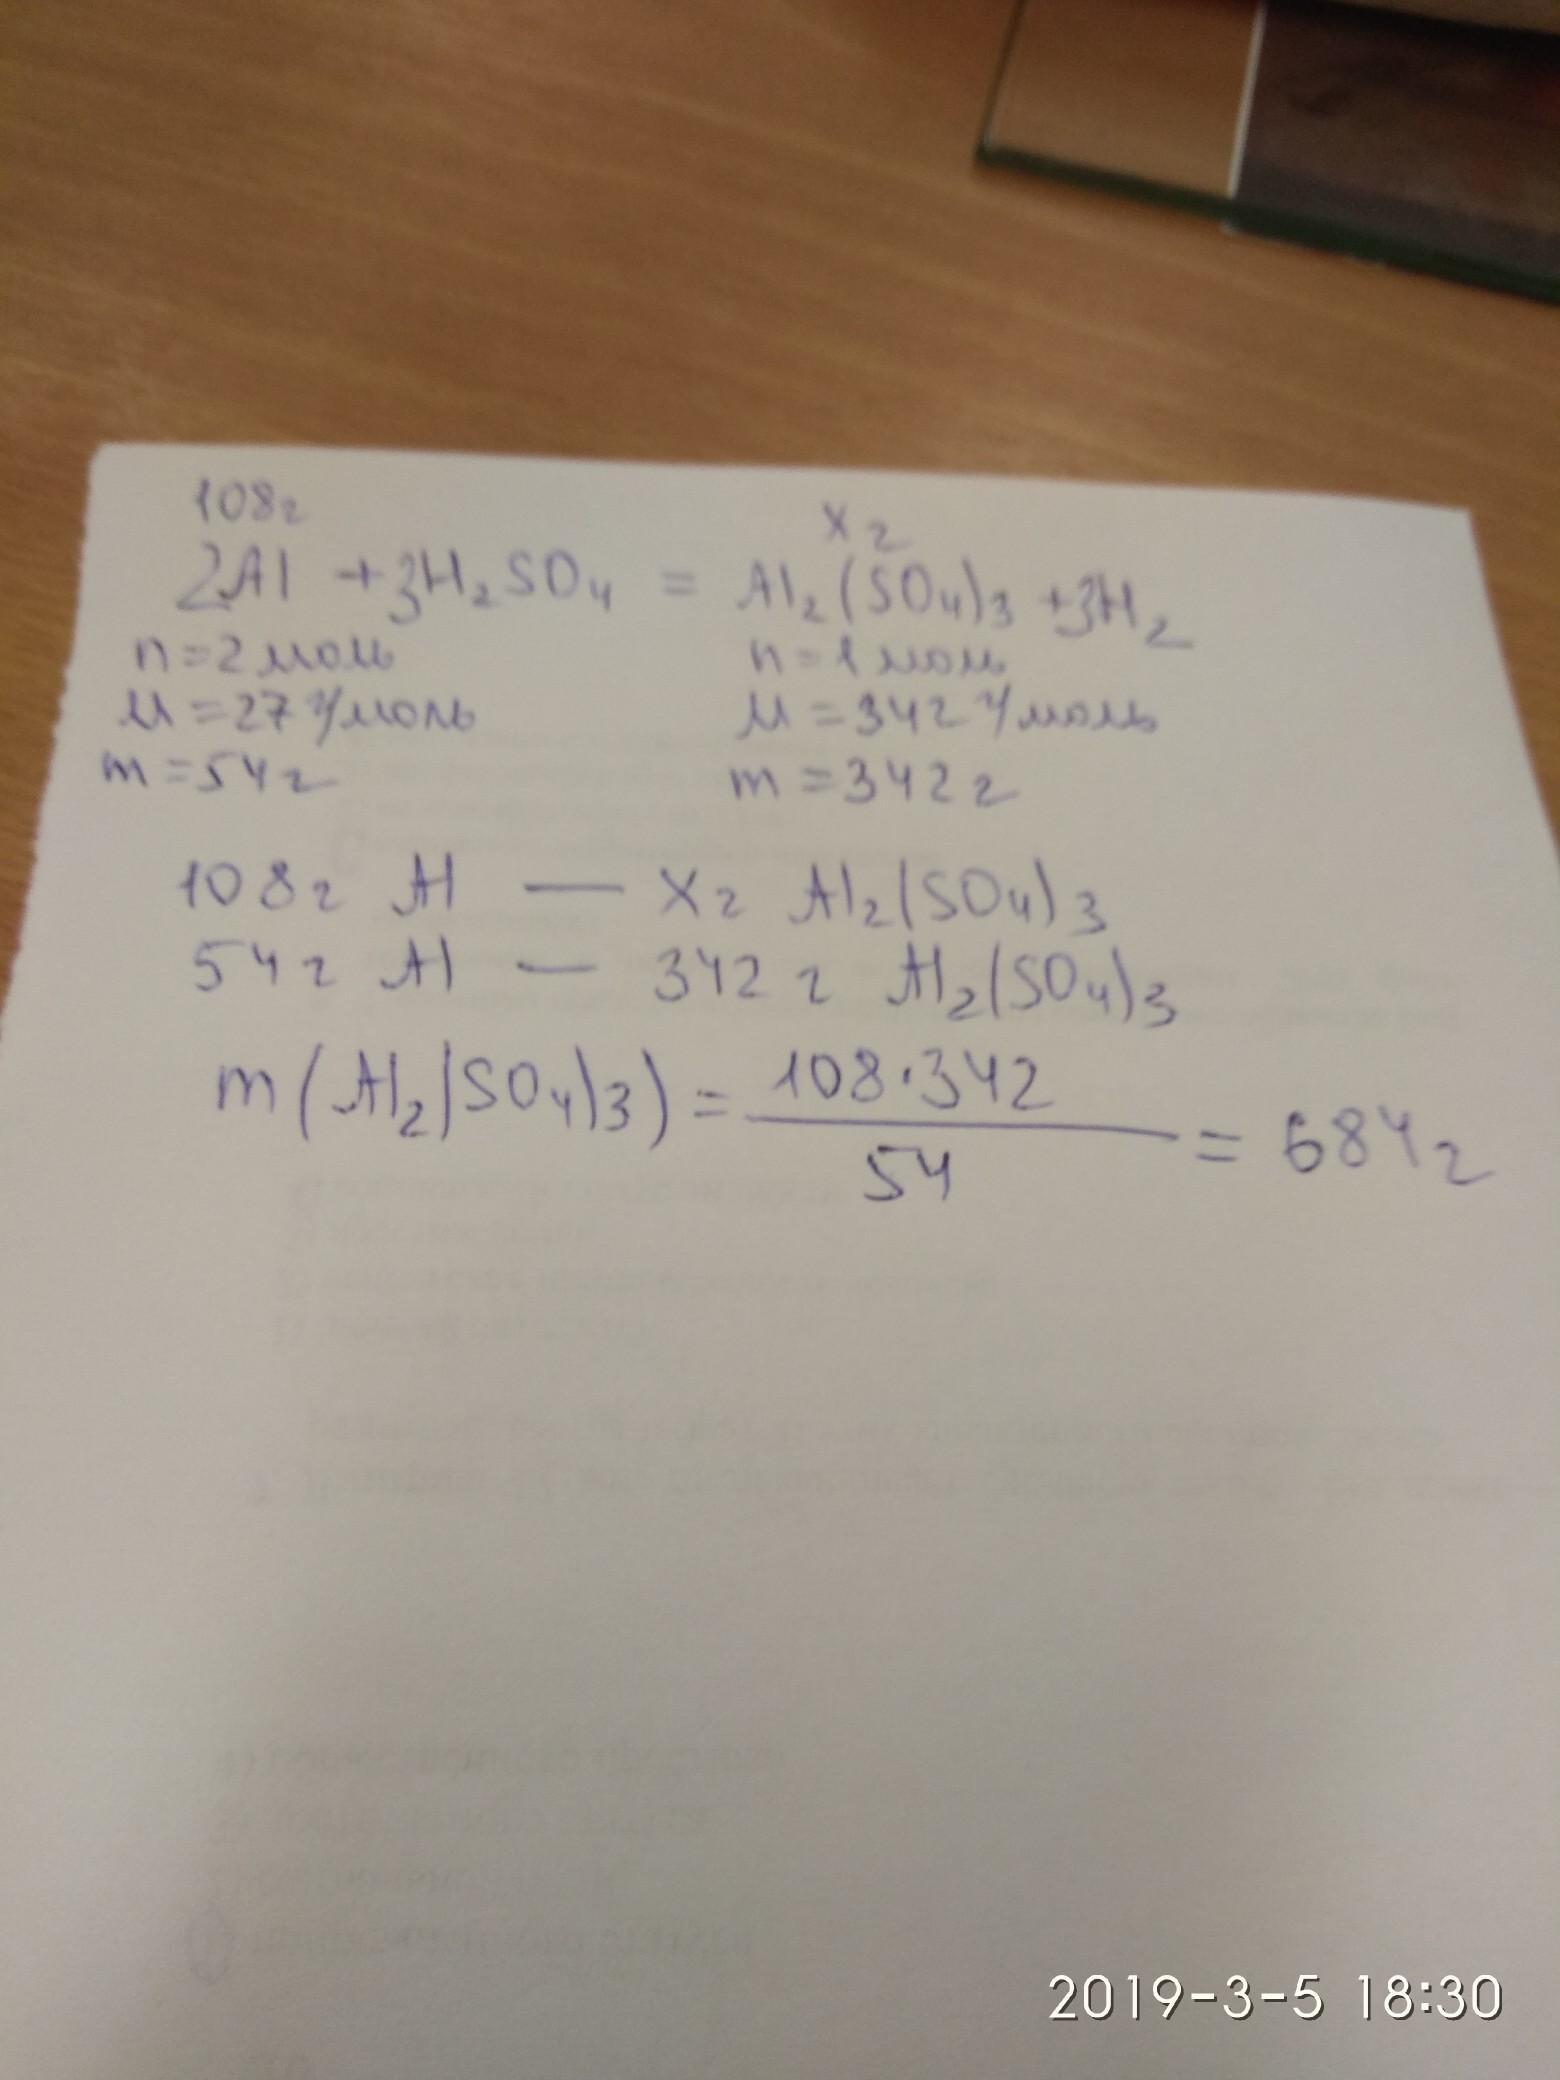 108г
х г
2Al + 3H₂SO₄ = Al₂(SO₄)₃ + 3H₂
n = 2 моль n = 1 моль
M = 27 г/моль M = 342 г/моль
m = 54 г m = 342 г
108 г Al — х г Al₂(SO₄)₃
54 г Al — 342 г Al₂(SO₄)₃
m(Al₂(SO₄)₃) = 108·342 / 54 = 684 г
2019-3-5 18:30